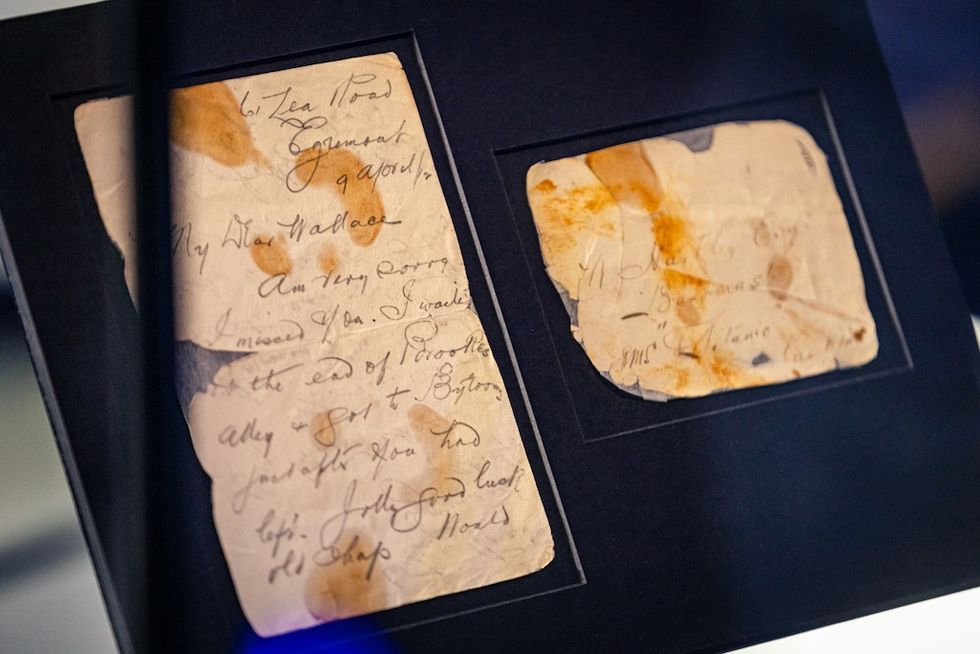 61 Lea Road
Egremont
9 April/12
My Dear Wallace
Am very sorry
I missed you. I waited
at the end of Brookes
Alley & got to Bytoms
just after you had
left. Jolly good luck
old chap
Ronald
W. Hartley Esq
Bandmas
"
RMS Titanic